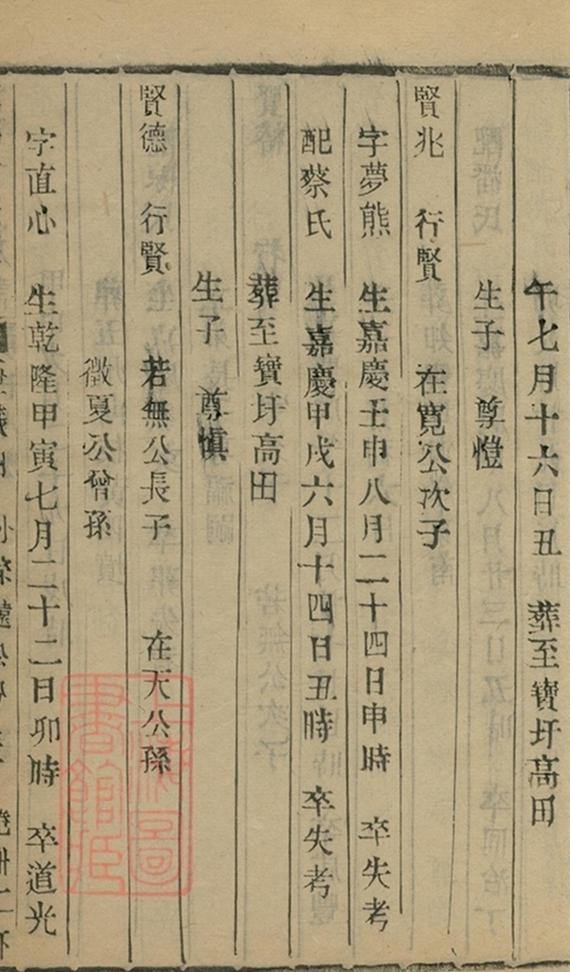 午七月十六日丑 葬至寶圩高田
生子 尊愷
賢兆 行賢 在寬公次子
字夢熊 生嘉慶壬申八月二十四日申時 卒失考
配蔡氏 生嘉慶甲戌六月十四日丑時 卒失考
葬至寶圩高田
生子 尊慎
賢德 行賢 若無公長子 在天公孫
徵夏公曾孫
字直心 生乾隆甲寅七月二十二日卯時 卒道光